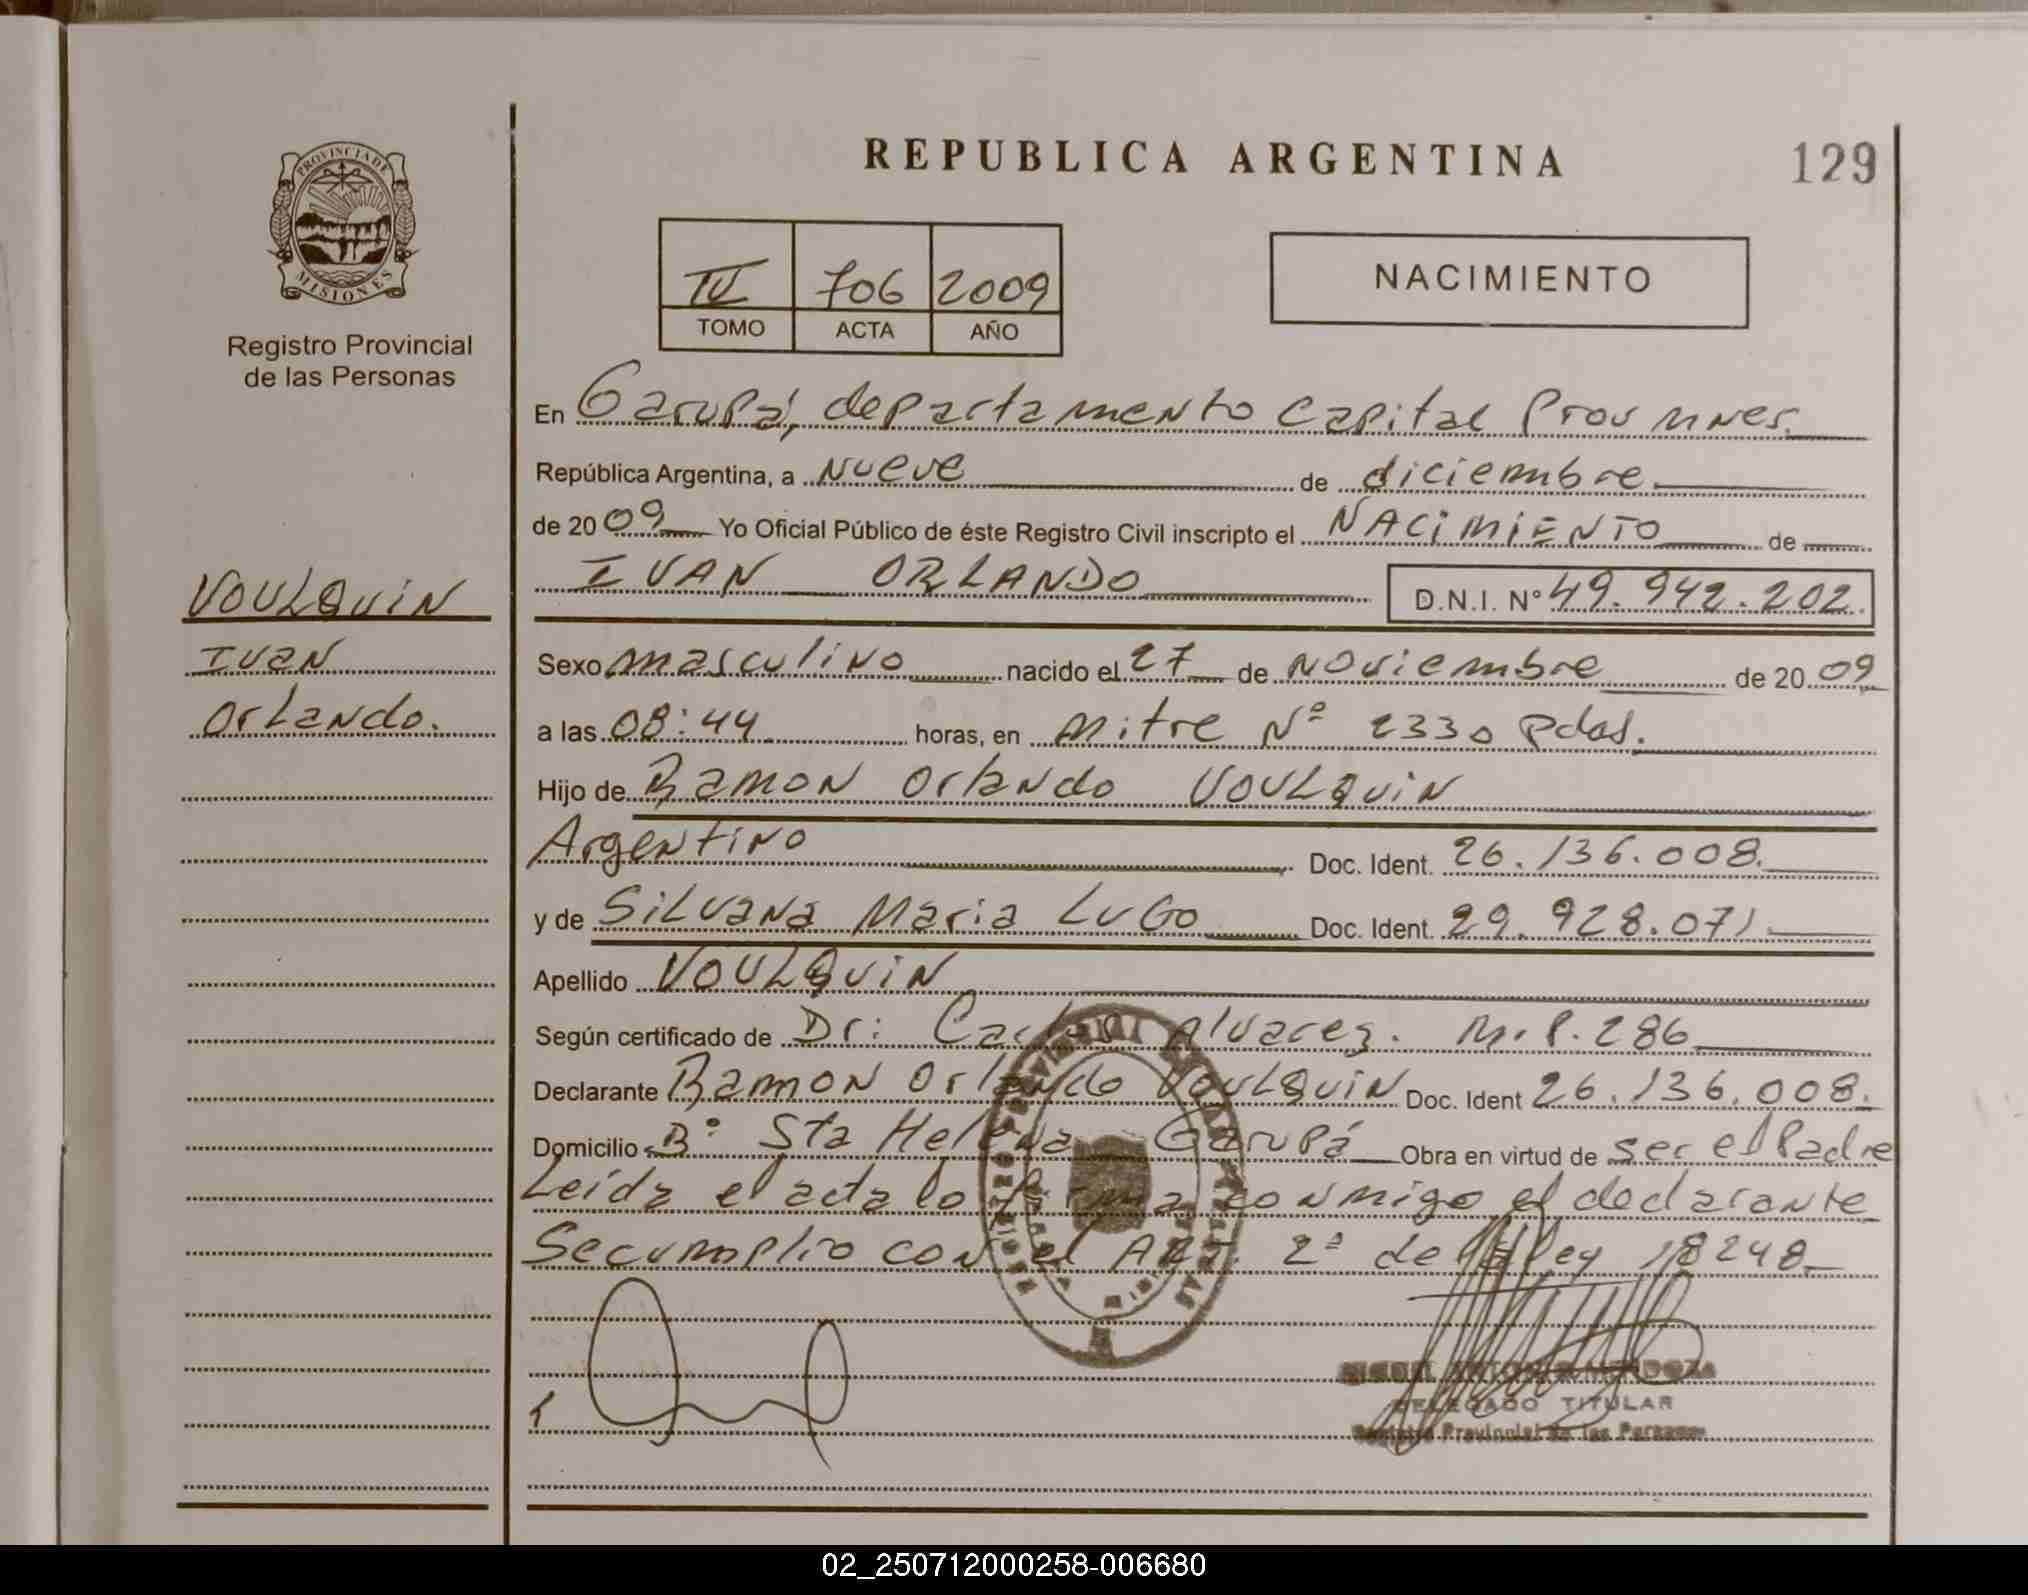 REPUBLICA ARGENTINA
129
PROVINCIA DE
MISIONES
Registro Provincial
de las Personas
IV 706 2009
TOMO ACTA AÑO
NACIMIENTO
En Garupá, departamento Capital Prov Mnes.
República Argentina, a nueve de diciembre
de 2009 Yo Oficial Público de éste Registro Civil inscripto el NACIMIENTO de
IVAN ORLANDO D.N.I. Nº 49.942.202.
VOULQUIN
Ivan
Orlando.
Sexo masculino nacido el 27 de noviembre de 2009
a las 08:44 horas, en Mitre Nº 2330 Pdas.
Hijo de Ramon Orlando VOULQUIN
Argentino Doc. Ident. 26.136.008.
y de Silvana Maria Lugo Doc. Ident. 29.928.071
Apellido VOULQUIN
Según certificado de Dr: Carlos Alvarez. M.P.286
Declarante Ramon Orlando VOULQUIN Doc. Ident 26.136.008.
Domicilio Bº Sta Helena Garupá Obra en virtud de ser el Padre
Leída el acta lo firma conmigo el declarante
Secumplio con el ART. 2ª de la ley 18248
ANTONIO MENDOZA
DELEGADO TITULAR
Registro Provincial de las Personas
02_250712000258-006680